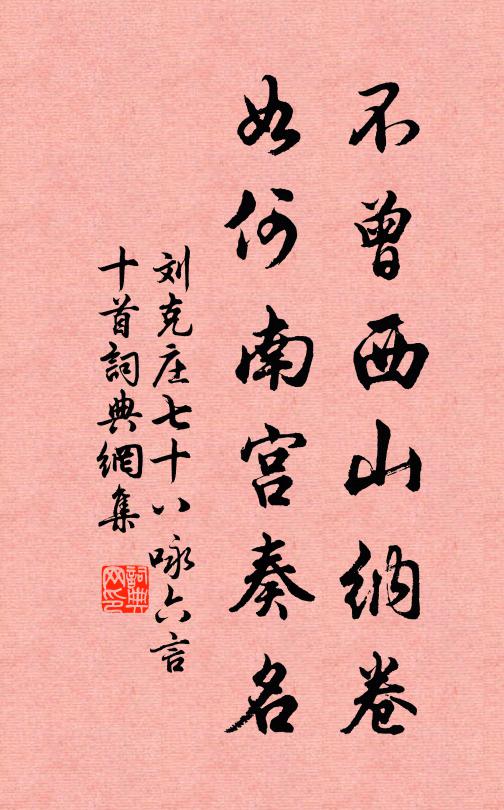 不曾西山纳卷
如何南宫奏名
刘克庄七十八咏六言
十首词典網集
詞典
网印